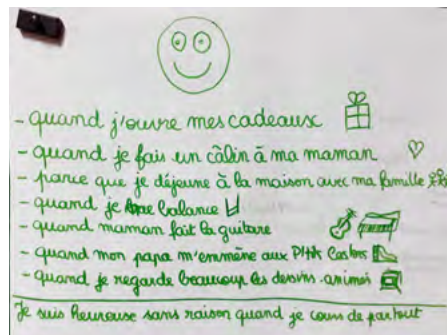 - quand j'ouvre mes cadeaux
- quand je fais un câlin à ma maman
- parce que je déjeune à la maison avec ma famille
- quand je balance
- quand maman fait la guitare
- quand mon papa m'emmène aux P'tits Castors
- quand je regarde beaucoup les dessins-animés
Je suis heureuse sans raison quand je cours de partout